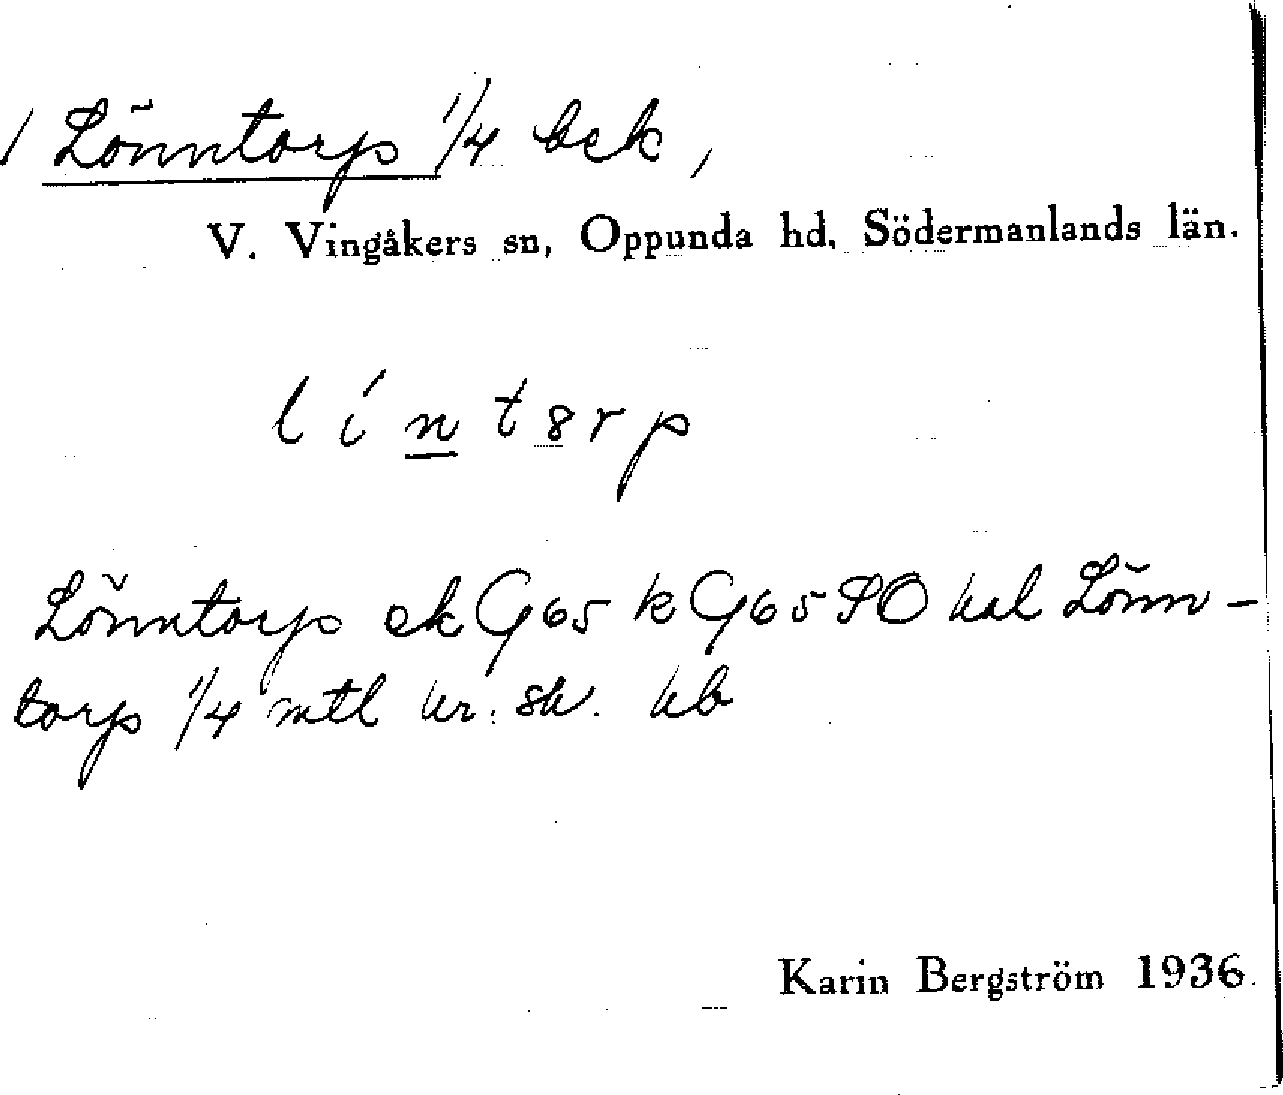 / Lönntorp 1/4 bek,
V. Vingåkers sn, Oppunda hd, Södermanlands län.
l í n t 8 r p
Lönntorp ek G65 k G65 SO hal Lönn-
torp 1/4 mtl kr. sk. kb
Karin Bergström 1936